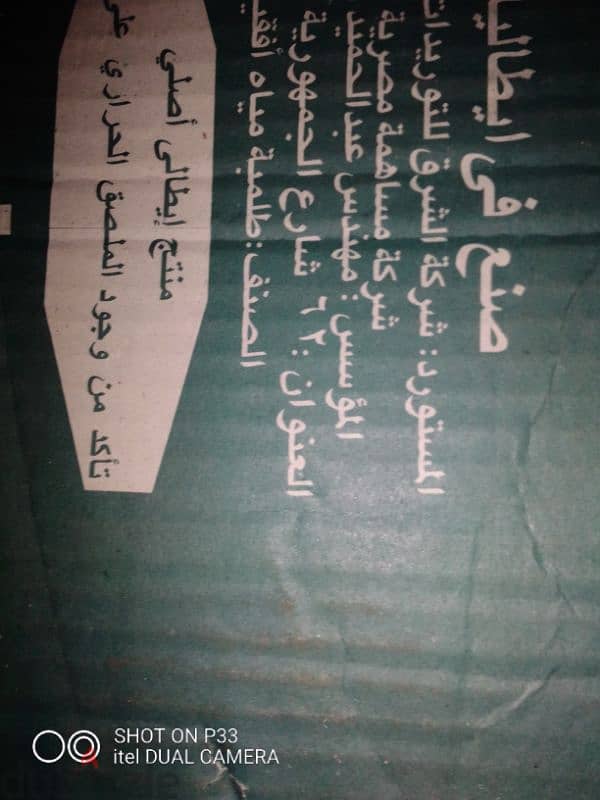 صنع فى ايطاليا
المستورد: شركة الشرق للتوريدات
شركة مساهمة مصرية
المؤسس: مهندس عبدالحميد
العنوان: ٦٢ شارع الجمهورية
الصنف: طلمبة مياه أفقية
منتج إيطالى أصلي
تأكد من وجود الملصق الحراري على
SHOT ON P33
itel DUAL CAMERA